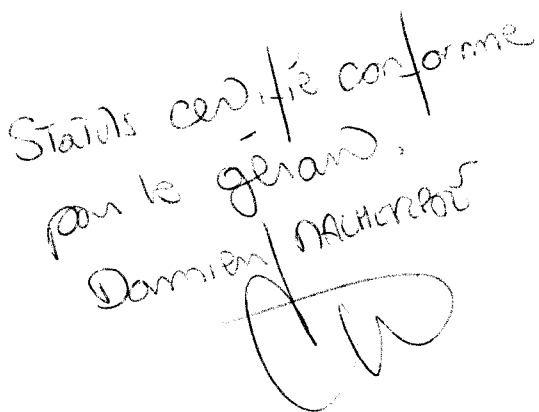 Statuts certifié conforme
par le gérant.
Damien